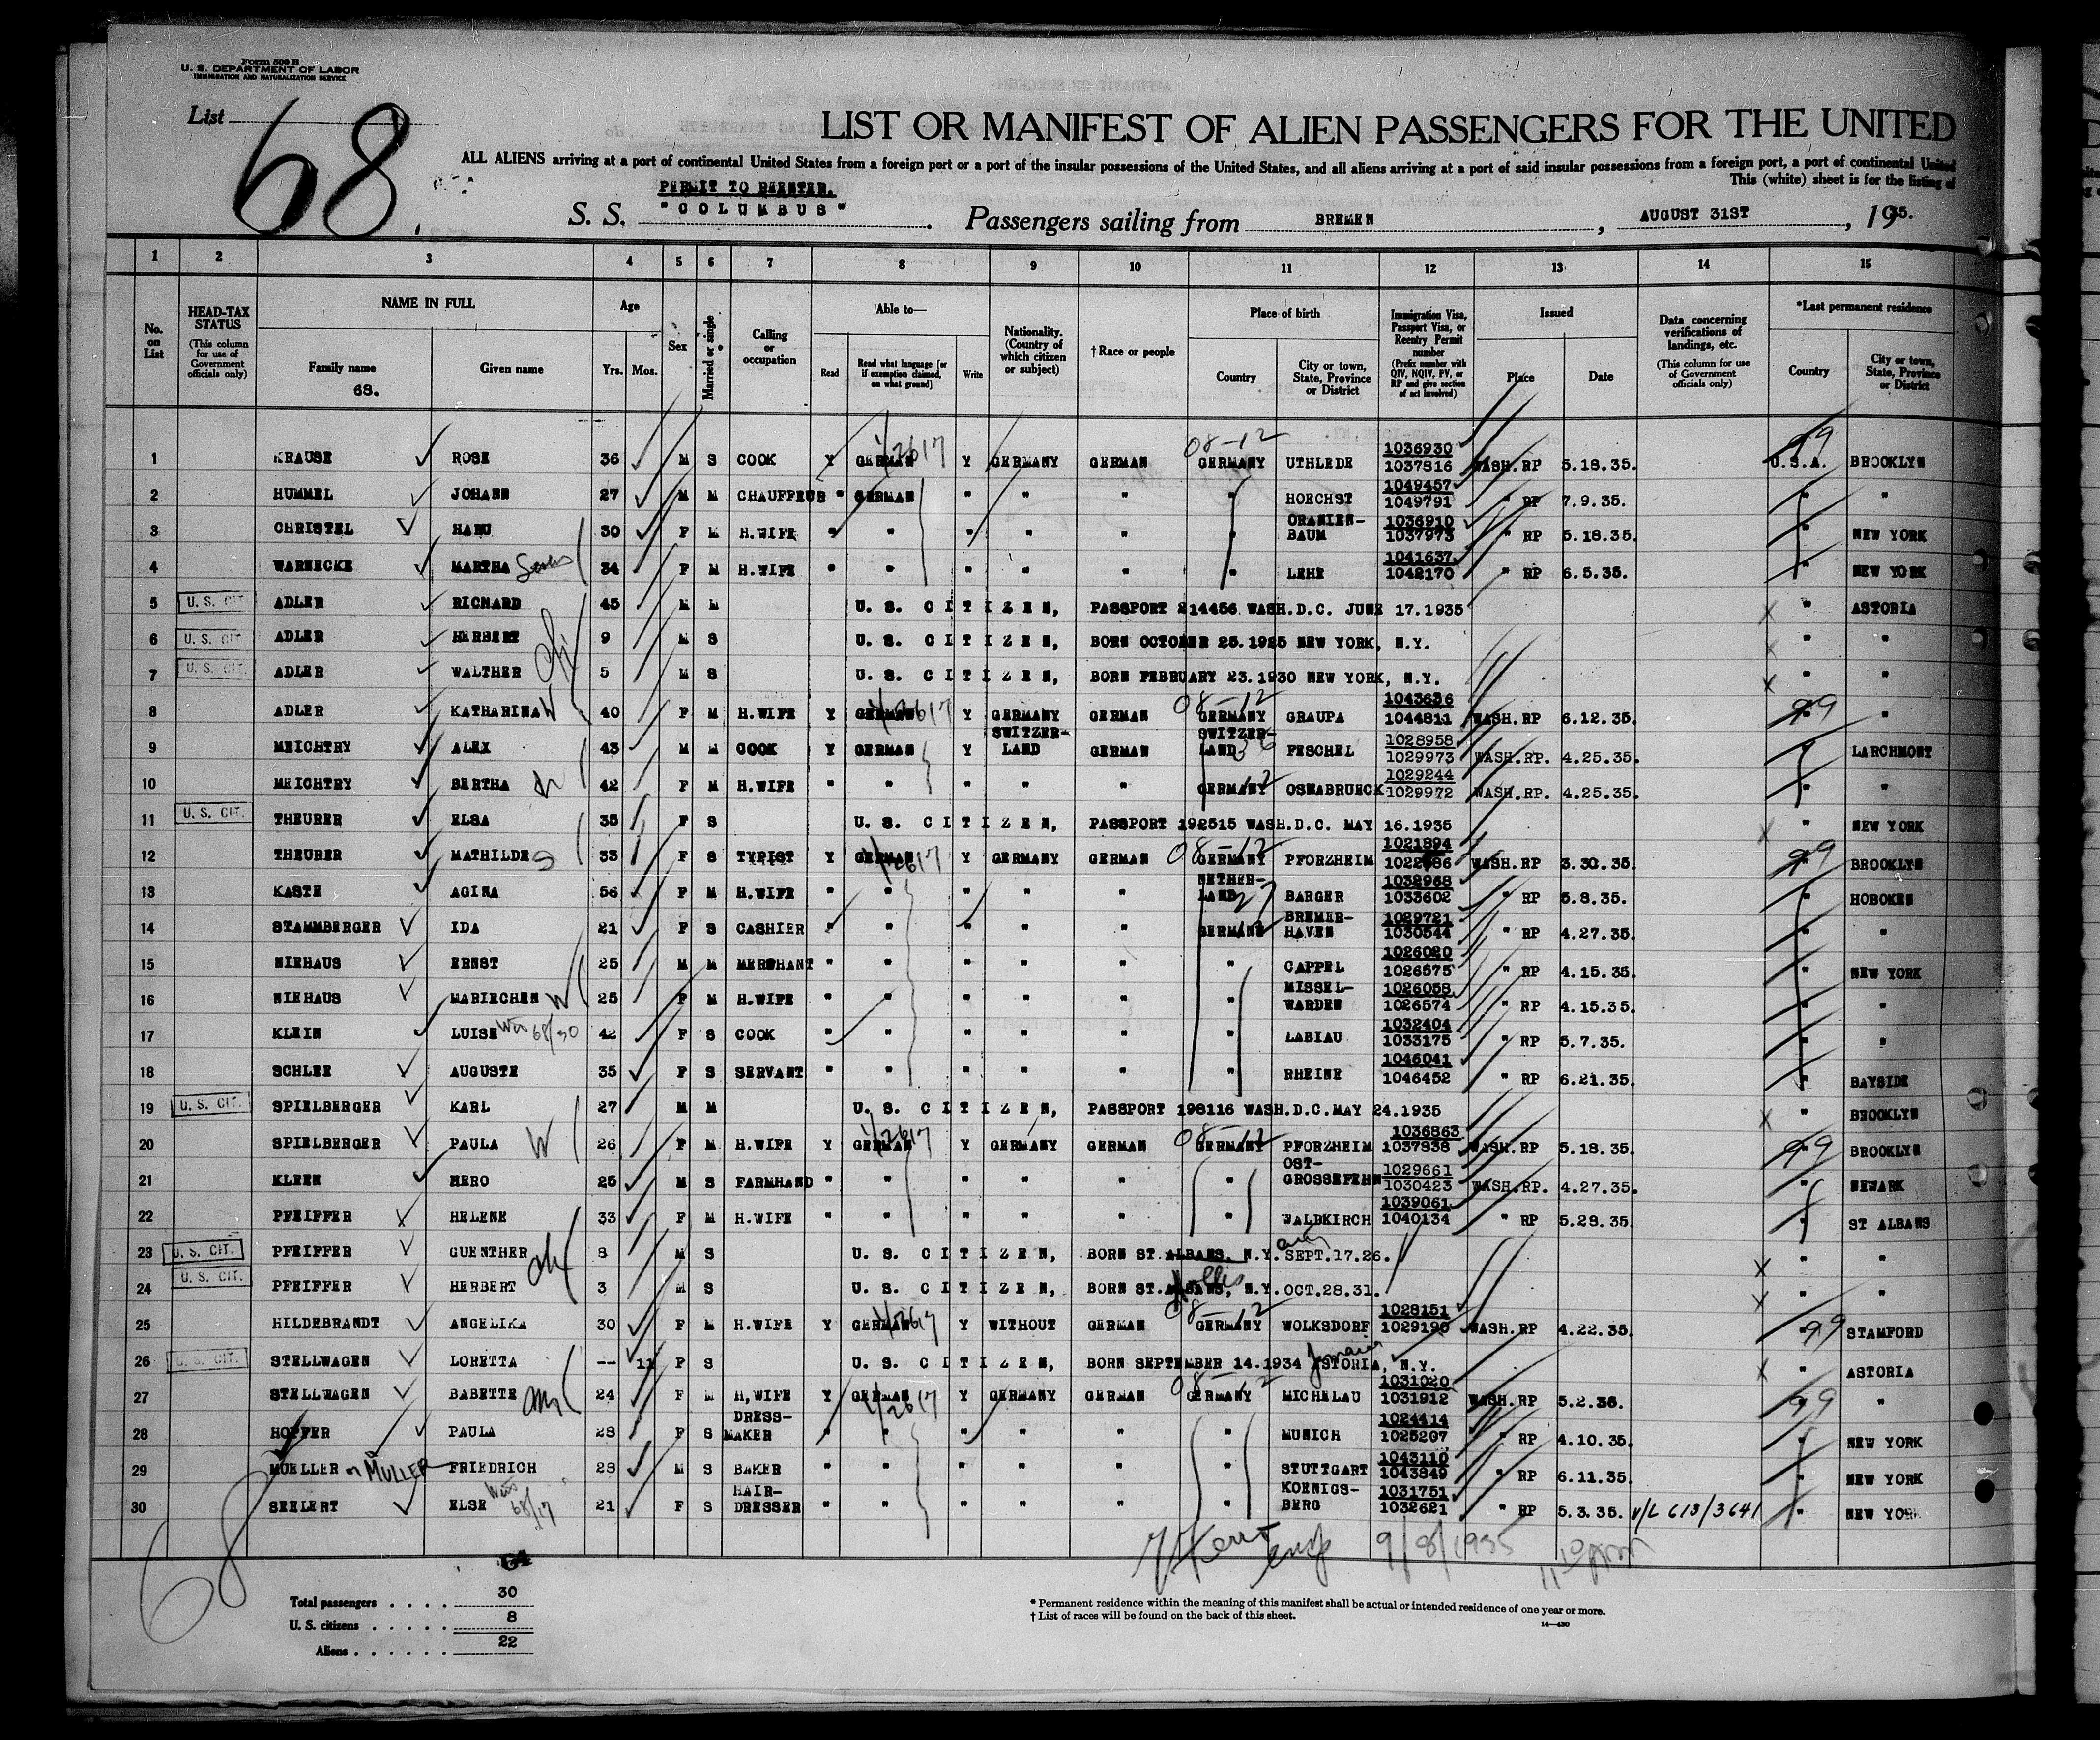 Form 500 B
U. S. DEPARTMENT OF LABOR
IMMIGRATION AND NATURALIZATION SERVICE
List 68.
LIST OR MANIFEST OF ALIEN PASSENGERS FOR THE UNITED
ALL ALIENS arriving at a port of continental United States from a foreign port or a port of the insular possessions of the United States, and all aliens arriving at a port of said insular possessions from a foreign port, a port of continental United
This (white) sheet is for the listing of
PERMIT TO REENTER.
S. S. "COLUMBUS". Passengers sailing from BREMEN, AUGUST 31ST, 1935.
1 2 3 4 5 6 7 8 9 10 11 12 13 14 15
No. on List
HEAD-TAX STATUS (This column for use of Government officials only)
NAME IN FULL
Family name 68.
Given name
Age Yrs. Mos.
Sex
Married or single
Calling or occupation
Able to— Read Read what language [or if exemption claimed, on what ground] Write
Nationality. (Country of which citizen or subject)
† Race or people
Place of birth Country City or town, State, Province or District
Immigration Visa, Passport Visa, or Reentry Permit number (Prefix number with QIV, NQIV, PV, or RP and give section of act involved)
Issued Place Date
Data concerning verifications of landings, etc. (This column for use of Government officials only)
*Last permanent residence Country City or town, State, Province or District
1 KRAUSE ROSE 36 M S COOK Y GERMAN 1/2617 Y GERMANY GERMAN 08-12 GERMANY UTHLEDE 1036930 1037816 WASH.RP 5.18.35. U.S.A. 99 BROOKLYN
2 HUMMEL JOHANN 27 M M CHAUFFEUR " GERMAN " " " " HOECHST 1049457 1049791 " RP 7.9.35. " "
3 CHRISTEL HANU 30 F M H.WIFE " " " " " " ORANIEN-BAUM 1036910 1037973 " RP 5.18.35. " NEW YORK
4 WARNECKE MARTHA 34 F M H.WIFE " " " " " " LEHE 1041637 1042170 " RP 6.5.35. " NEW YORK
5 U. S. CIT ADLER RICHARD 45 M M U. S. CITIZEN, PASSPORT 214456 WASH.D.C. JUNE 17.1935 x " ASTORIA
6 U. S. CIT ADLER HERBERT 9 M S U. S. CITIZEN, BORN OCTOBER 25.1925 NEW YORK, N.Y. x " "
7 U. S. CIT. ADLER WALTHER 5 M S U. S. CITIZEN, BORN FEBRUARY 23.1930 NEW YORK, N.Y. x " "
8 ADLER KATHARINA W 40 F M H.WIFE Y GERMAN 1/2617 Y GERMANY GERMAN 08-12 GERMANY GRAUPA 1043636 1044811 WASH.RP 6.12.35. 99 "
9 MEICHTRY ALEX 43 M M COOK Y GERMAN Y SWITZER-LAND GERMAN SWITZER-LAND 36 FESCHEL 1028958 1029973 WASH.RP. 4.25.35. " LARCHMONT
10 MEICHTRY BERTHA 42 F M H.WIFE " " " " " GERMANY 12 OSNABRUECK 1029244 1029972 WASH.RP. 4.25.35. " "
11 U. S. CIT. THEURER ELSA 35 F S U. S. CITIZEN, PASSPORT 192515 WASH.D.C. MAY 16.1935 x " NEW YORK
12 THEURER MATHILDE S 33 F S TYPIST Y GERMAN 1/2617 Y GERMANY GERMAN 08-12 GERMANY PFORZHEIM 1021894 1022486 WASH.RP 3.30.35. 99 BROOKLYN
13 KASTE AGINA 56 F M H.WIFE " " " " " NETHER-LAND 27 BARGER 1032968 1033602 " RP 5.8.35. " HOBOKEN
14 STAMMBERGER IDA 21 F S CASHIER " " " " " GERMANY BREMER-HAVEN 1029721 1030544 " RP 4.27.35. " "
15 NIEHAUS ERNST 25 M M MERCHANT " " " " " " CAPPEL 1026020 1026575 " RP 4.15.35. " NEW YORK
16 NIEHAUS MARIECHEN W 25 F M H.WIFE " " " " " " MISSEL-WARDEN 1026058 1026574 " RP 4.15.35. " "
17 KLEIN LUISE 68/30 42 F S COOK " " " " " " LABIAU 1032404 1033175 " RP 5.7.35. " "
18 SCHLEE AUGUSTE 35 F S SERVANT " " " " " " RHEINE 1046041 1046452 " RP 6.21.35. " BAYSIDE
19 U. S. CIT. SPIELBERGER KARL 27 M M U. S. CITIZEN, PASSPORT 198116 WASH.D.C.MAY 24.1935 x " BROOKLYN
20 SPIELBERGER PAULA W 26 F M H.WIFE Y GERMAN 1/2617 Y GERMANY GERMAN 08-12 GERMANY PFORZHEIM 1036863 1037838 WASH.RP 5.18.35. 99 BROOKLYN
21 KLEEN HERO 25 M S FARMHAND " " " " " " OST-GROSSEFEHN 1029661 1030423 WASH.RP. 4.27.35. " NEWARK
22 PFEIFFER HELENE 33 F M H.WIFE " " " " " " WALDKIRCH 1039061 1040134 " RP 5.28.35. " ST ALBANS
23 U. S. CIT. PFEIFFER GUENTHER 8 M S U. S. CITIZEN, BORN ST.ALBANS, N.Y. SEPT.17.26. x " "
24 U. S. CIT. PFEIFFER HERBERT 3 M S U. S. CITIZEN, BORN ST.ALBANS, Hollis N.Y. OCT.28.31. x " "
25 HILDEBRANDT ANGELIKA 30 F M H.WIFE Y GERMAN 1/2617 Y WITHOUT GERMAN 08-12 GERMANY WOLKSDORF 1028151 1029190 WASH.RP 4.22.35. 99 STAMFORD
26 U. S. CIT. STELLWAGEN LORETTA -- 11 F S U. S. CITIZEN, BORN SEPTEMBER 14.1934 ASTORIA, Jamaica N.Y. x " ASTORIA
27 STELLWAGEN BABETTE 24 F M H,WIFE Y GERMAN 1/2617 Y GERMANY GERMAN 08-12 GERMANY MICHELAU 1031020 1031912 WASH.RP 5.2.35. 99 "
28 HOPFER PAULA 28 F S DRESS-MAKER " " " " " " MUNICH 1024414 1025207 " RP 4.10.35. " NEW YORK
29 MUELLER or MULLER FRIEDRICH 28 M S BAKER " " " " " " STUTTGART 1043110 1043849 " RP 6.11.35. " NEW YORK
30 SEELERT ELSE 68/17 21 F S HAIR-DRESSER " " " " " " KOENIGS-BERG 1031751 1032621 " RP 5.3.35. V/L 613/3641 " NEW YORK
68
9/8/1935
Total passengers . . . . 30
U. S. citizens . . . . . 8
Aliens . . . . . . 22
* Permanent residence within the meaning of this manifest shall be actual or intended residence of one year or more.
† List of races will be found on the back of this sheet.
14—430